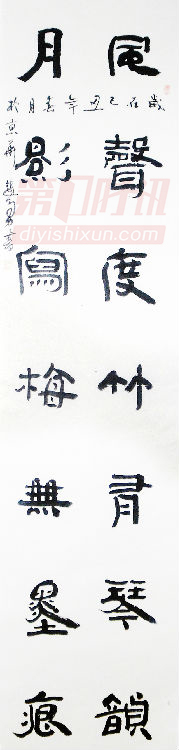 風聲度竹有琴韻
月影寫梅無墨痕
歲在己丑年
月於
京華
第1时讯
diyishixun.com